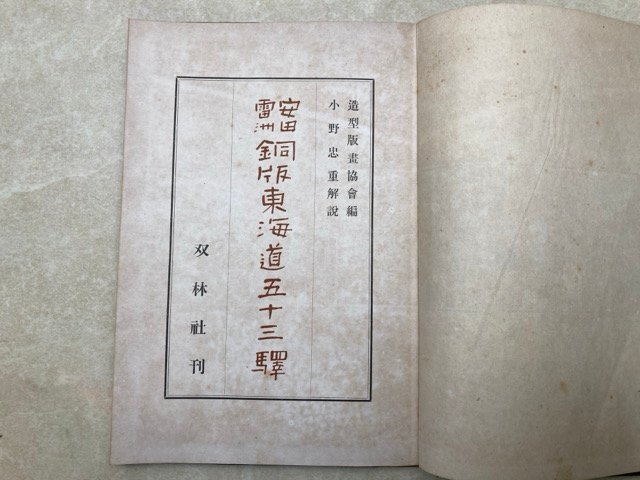 造型版畫協會編
小野忠重解說
安田雷洲
銅版東海道五十三驛
双林社刊